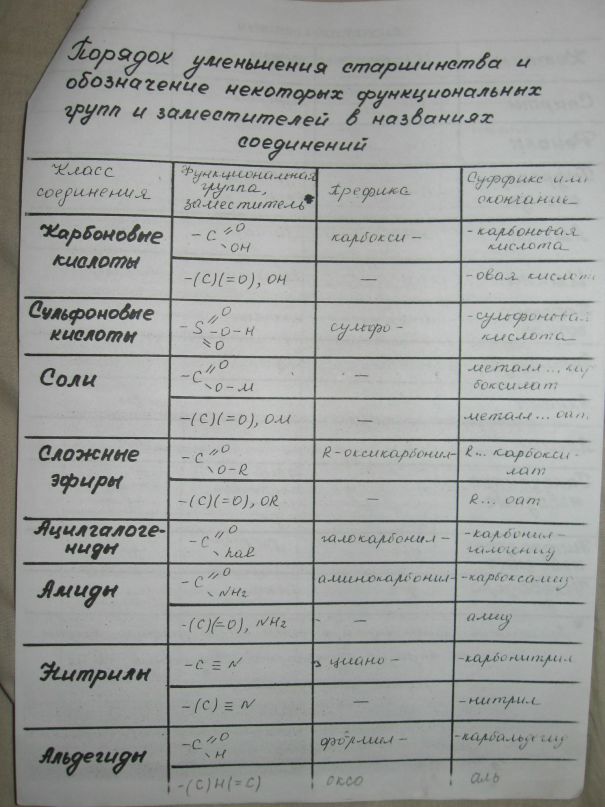 Порядок уменьшения старшинства и
обозначение некоторых функциональных
групп и заместителей в названиях
соединений
Класс соединения | Функциональная группа, заместитель | Префикс | Суффикс или окончание
Карбоновые кислоты | -C(=O)OH | карбокси- | -карбоновая кислота
-(C)(=O), OH | — | -овая кислота
Сульфоновые кислоты | -S(=O)(=O)-O-H | сульфо- | -сульфоновая кислота
Соли | -C(=O)O-M | — | металл... карбоксилат
-(C)(=O), OM | — | металл... оат
Сложные эфиры | -C(=O)O-R | R-оксикарбонил- | R... карбоксилат
-(C)(=O), OR | — | R... оат
Ацилгалогениды | -C(=O)hal | галокарбонил- | -карбонил-галогенид
Амиды | -C(=O)NH2 | аминокарбонил- | -карбоксамид
-(C)(=O), NH2 | — | амид
Нитрилы | -C≡N | циано- | -карбонитрил
-(C)≡N | — | -нитрил
Альдегиды | -C(=O)H | формил- | -карбальдегид
-(C)H(=C) | оксо | аль